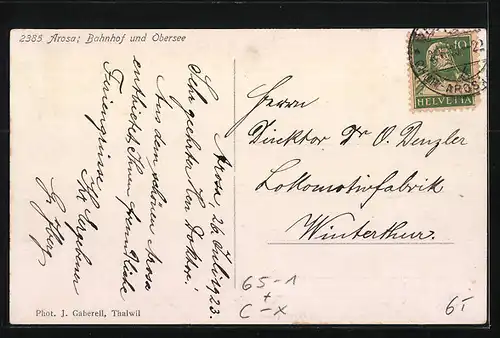 2385 Arosa; Bahnhof und Obersee
Arosa, 26. Juli 1923.
Sehr geehrter Herr Doktor!
Aus dem schönen Arosa
entbietet Ihnen freundliche
Feriengrüsse
Ihr Ergebener
HELVETIA
10
AROSA
Herrn
Direktor Dr O. Denzler
Lokomotivfabrik
Winterthur.
65-1
+
C-X
6.-
Phot. J. Gaberell, Thalwil